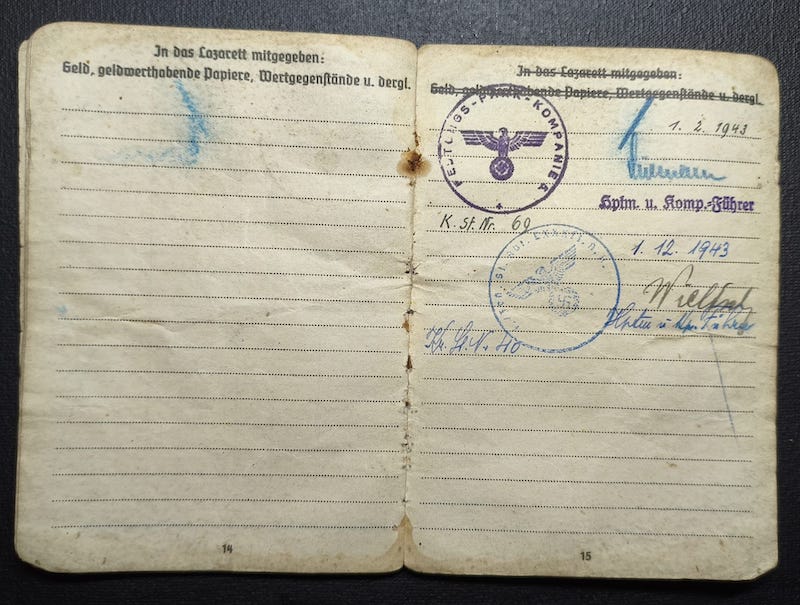 In das Lazarett mitgegeben:
Geld, geldwerthabende Papiere, Wertgegenstände u. dergl.
14
In das Lazarett mitgegeben:
Geld, geldwerthabende Papiere, Wertgegenstände u. dergl.
FESTUNGS-PARK-KOMPANIE 4
1. 2. 1943
Hptm. u. Komp.-Führer
K. St. Nr. 69
1. 12. 1943
Hptm u. Kp. Führer
St. Nr. 40
15